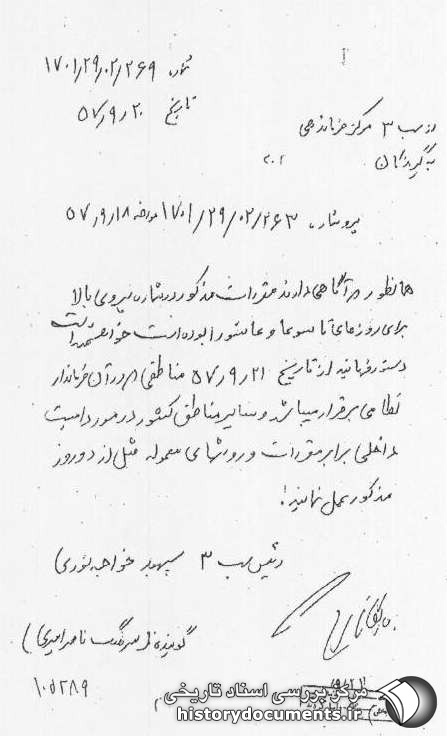 شماره ۱۷۰۱/۲۹/۰۲/۲۶۹
تاریخ ۵۷/۹/۲۰
از س ب ۳ مرکز فرماندهی
به گیرندگان
پیرو شماره ۱۷۰۱/۲۹/۰۲/۲۶۳ مورخه ۵۷/۹/۱۸
همانطور که آگاهی دارند مقررات مذکور در شماره پیروی بالا
برای روزهای تاسوعا و عاشورا بوده است خواهشمند است
دستور فرمائید از تاریخ ۵۷/۹/۲۱ مناطقی که در آن فرماندار
نظامی برقرار میباشد و سایر مناطق کشور در مورد امنیت
داخلی برابر مقررات و روشهای معموله قبل از دو روز
مذکور عمل نمایند!
رئیس س ب ۳ سپهبد خواجه نوری
گوینده سرهنگ ناصر امیری
۱۰۵۲۸۹
مرکز بررسی اسناد تاریخی
historydocuments.ir